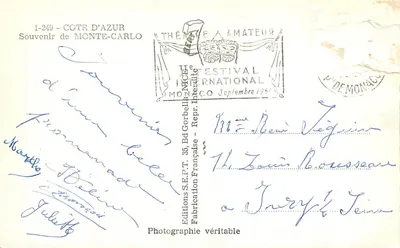 1-249 - COTE D'AZUR
Souvenir de MONTE-CARLO
THÉÂTRE AMATEUR
FESTIVAL
INTERNATIONAL
MONACO Septembre
Pté DE MONACO
Souvenirs
d'une belle
promenade
Hélène
Juliette
Editions S.E.P.T. 35, Bd Gorbella, NICE
Fabrication Française - Repr. Interdite
Mme René
11 Louis Rousseau
a Ivry s/ Seine
Photographie véritable